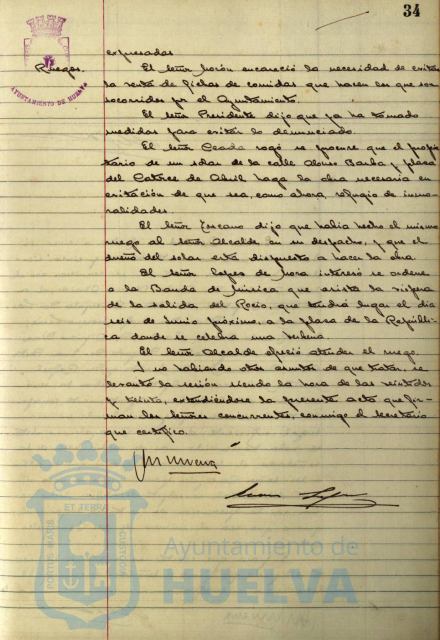 34
AYUNTAMIENTO DE HUELVA
expresadas
Ruegos. El señor Morón encareció la necesidad de evitar
la venta de fichas de comidas que hacen los que son
socorridos por el Ayuntamiento.
El señor Presidente dijo que ya ha tomado
medidas para evitar lo denunciado.
El señor Ceada rogó se procure que el propie
tario de un solar de la calle Alonso Barba y plaza
del Catorce de Abril haga la obra necesaria en
evitación de que sea, como ahora, refugio de inmo-
ralidades.
El señor Toscano dijo que había hecho el mismo
ruego al señor Alcalde en su despacho, y que el
dueño del solar está dispuesto a hacer la obra.
El señor López de Mora interesó se ordene
a la Banda de Música que asista la víspera
de la salida del Rocío, que tendrá lugar el día
seis de Junio próximo, a la plaza de la Repúbli-
ca donde se celebra una
El señor Alcalde ofreció atender el ruego.
Y no habiendo otros asuntos de que tratar, se
levantó la sesión siendo la hora de las veintidós
y treinta, extendiéndose la presente acta que fir-
man los señores concurrentes, conmigo el Secretario
que certifico.
PORTUS MARIS ET TERRAE CUSTODIA
Ayuntamiento de
HUELVA